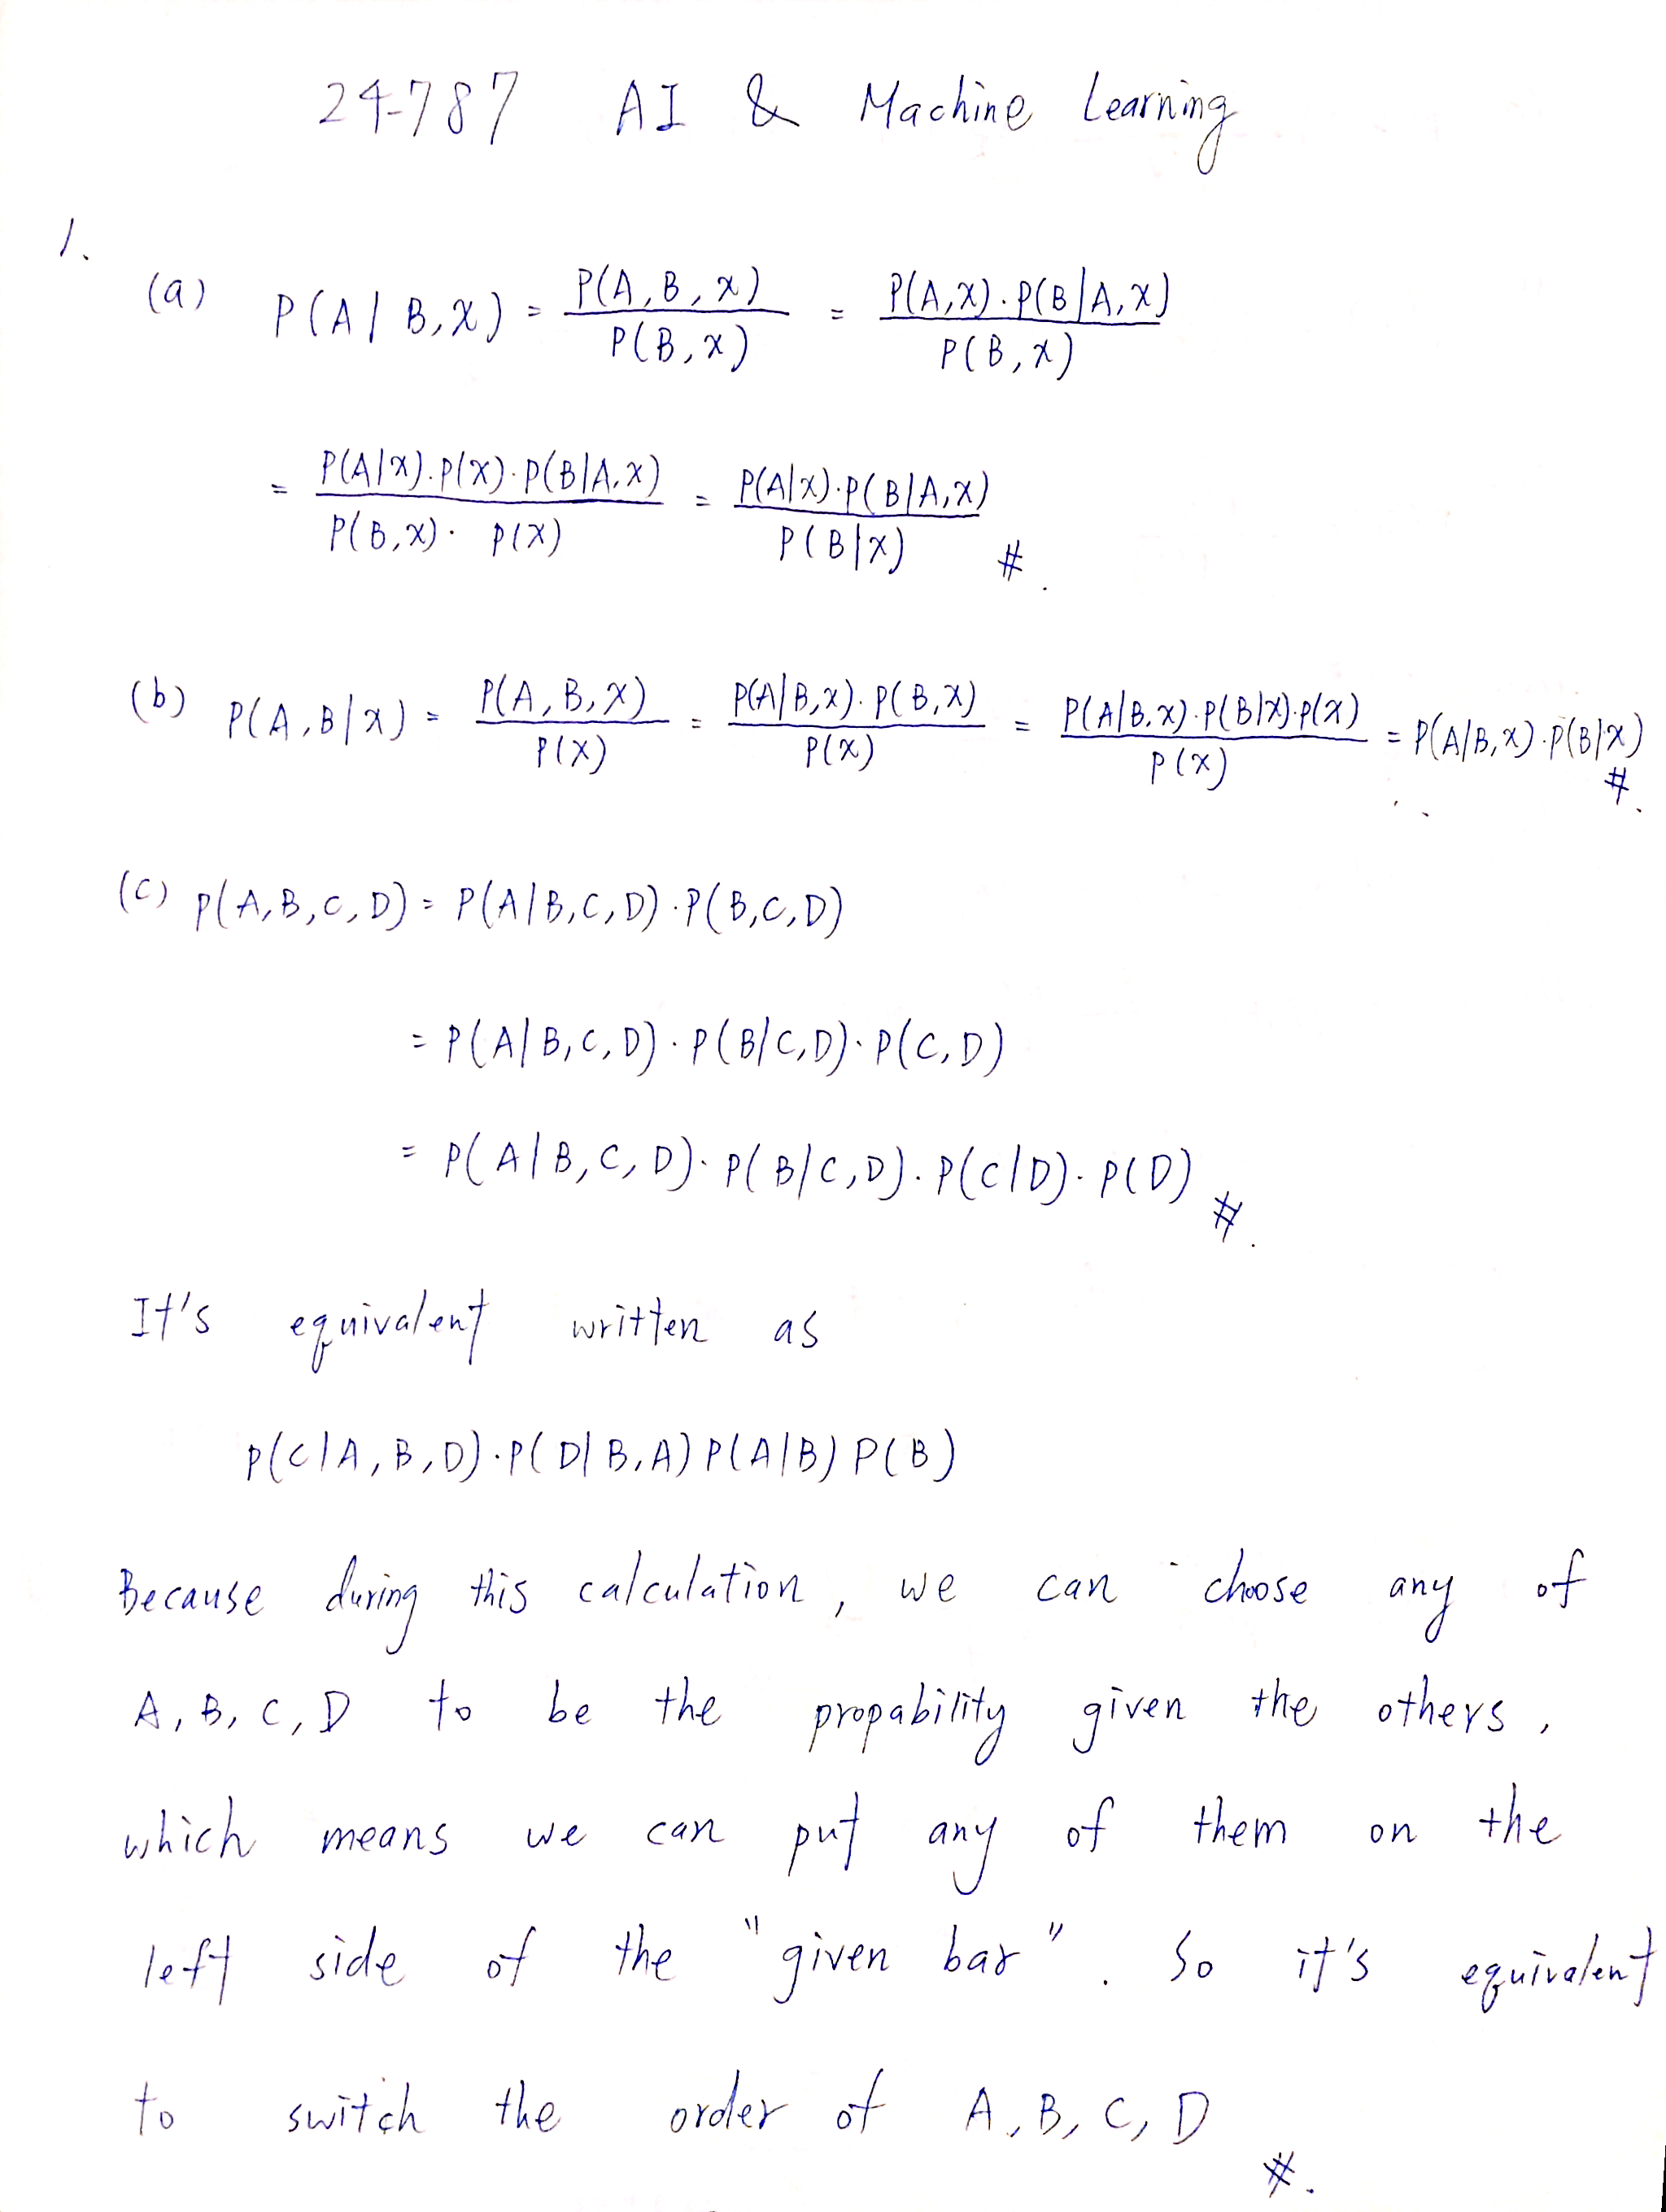 24-787 AI & Machine Learning
1.
(a) P(A | B, x) = P(A, B, x) / P(B, x) = P(A,x) · P(B|A, x) / P(B, x)
= P(A|x) · P(x) · P(B|A, x) / P(B, x) · P(x) = P(A|x) · P(B|A, x) / P(B|x) #.
(b) P(A, B|x) = P(A, B, x) / P(x) = P(A|B, x) · P(B, x) / P(x) = P(A|B, x) · P(B|x) · P(x) / P(x) = P(A|B, x) · P(B|x) #.
(c) P(A, B, C, D) = P(A|B, C, D) · P(B, C, D)
= P(A|B, C, D) · P(B|C, D) · P(C, D)
= P(A|B, C, D) · P(B|C, D) · P(C|D) · P(D) #.
It's equivalent written as
P(C|A, B, D) · P(D|B, A) P(A|B) P(B)
Because during this calculation, we can choose any of
A, B, C, D to be the propability given the others,
which means we can put any of them on the
left side of the "given bar". So it's equivalent
to switch the order of A, B, C, D #.